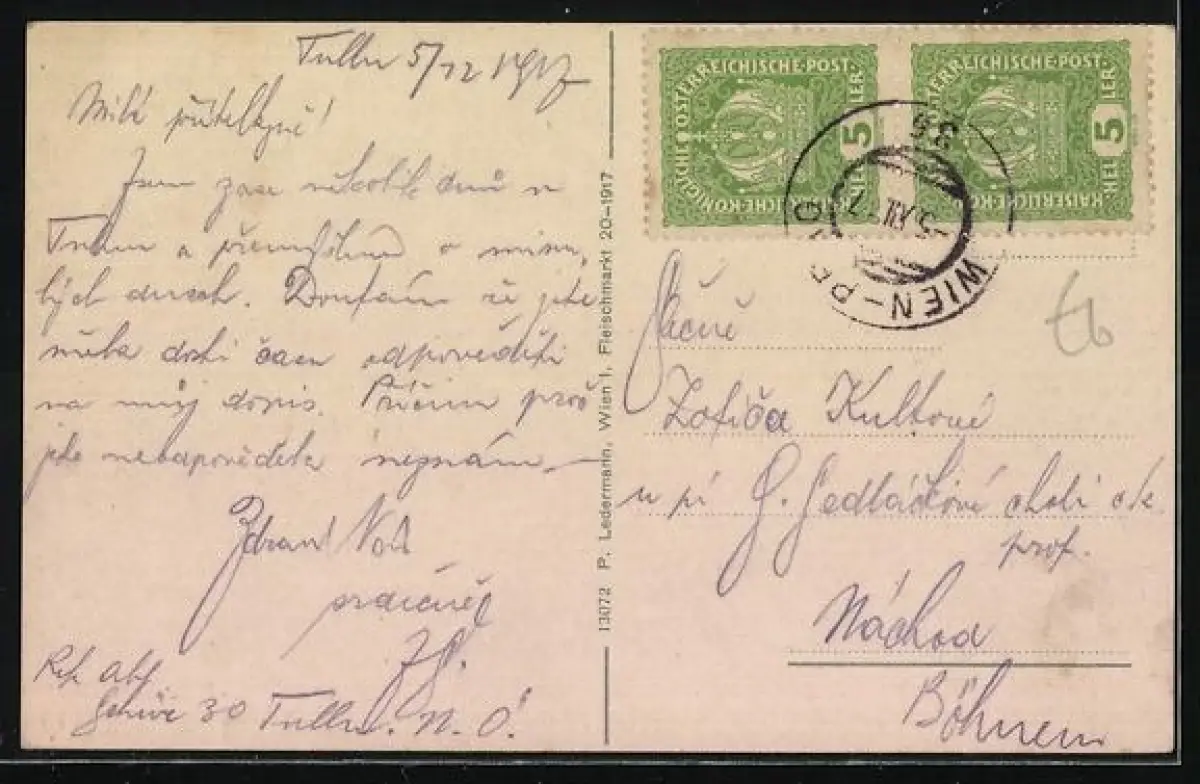 Tulln 5/12 1917
Milá přítelkyně!
Jsem zase několik dnů v
Tullnu a přemýšlím o
duších. Doufám že jste
měla dosti času odpověděti
na můj dopis. Příčinu proč
jste neodpověděla neznám. —
Zdraví Vás
srdečně
Tulln. N. Ö.
30
13072 P. Ledermann, Wien I, Fleischmarkt 20–1917
KAISERLICHE KÖNIGLICHE ÖSTERREICHISCHE POST
5 HELLER
KAISERLICHE KÖN ÖSTERREICHISCHE-POST-
5 HELLER
WIEN-PR
5 XII 17
Slečně
Kultové
u pí G. Sedláčkové choti c.k.
prof.
Náchod
Böhmen